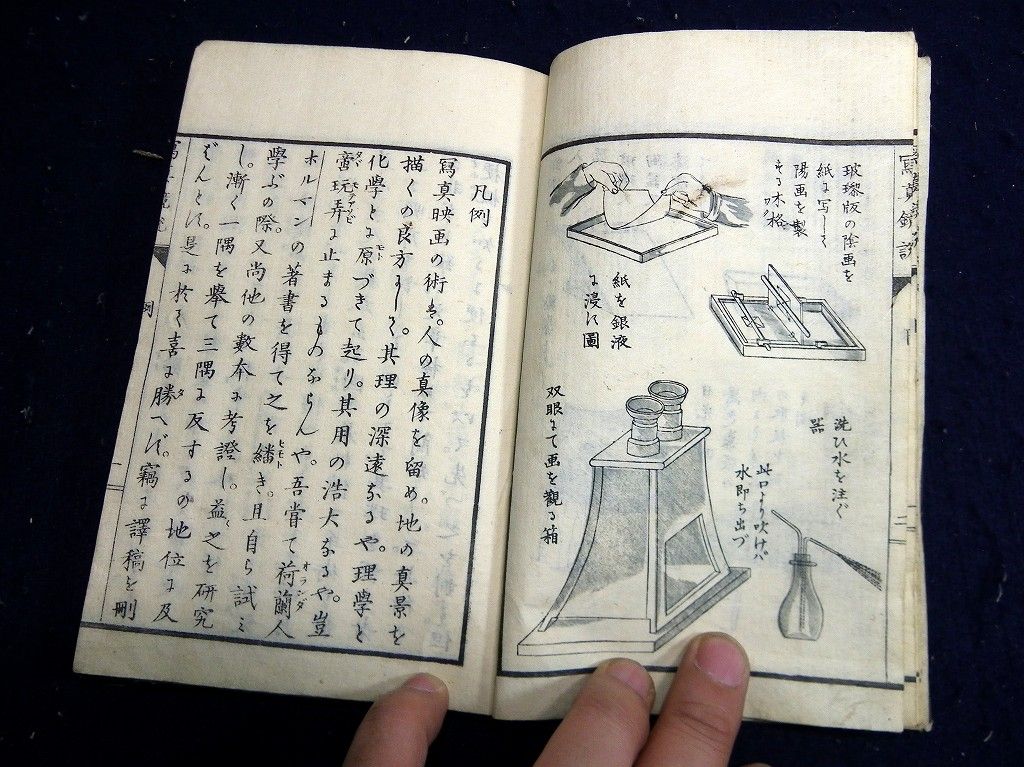 寫真鏡説
玻瓈版の陰画を
紙に写して
陽画を製
する木格
ワク
紙を銀液
に浸す圖
洗ひ水を注ぐ
器
此口より吹けバ
水即ち出づ
双眼にて画を觀る箱
凡例
寫真映画の術ハ。人の真像を留め。地の真景を
描くの良方にして。其理の深遠なるや。理學と
化學とに原づきて起り。其用の浩大なるや。豈
啻玩弄に止まるものならんや。吾嘗て荷蘭人
ホルマンの著書を得て之を繙き。且自ら試ミ
學ぶの際。又尚他の數本に考證し。益〻之を研究
し。漸く一隅を舉て三隅に反するの地位に及
ばんとす。是に於て喜に勝へず。竊に譯稿を刪